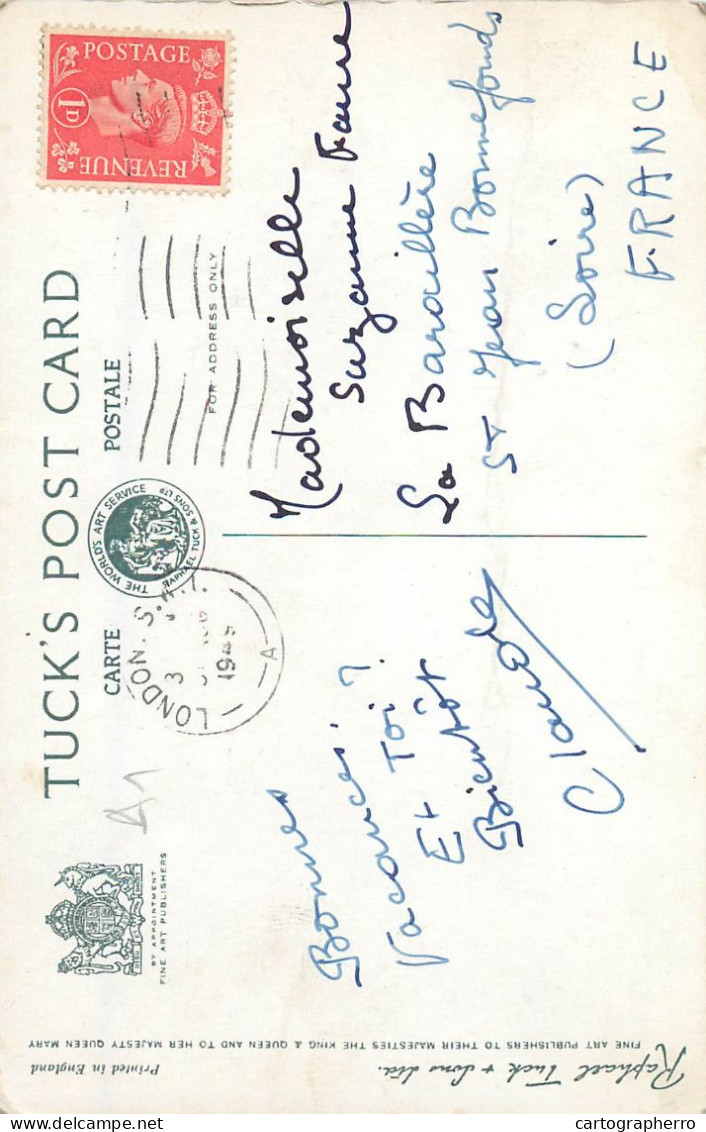 TUCK'S POST CARD
CARTE POSTALE
THE WORLD'S ART SERVICE
RAPHAEL TUCK & SONS LTD
BY APPOINTMENT
FINE ART PUBLISHERS
FOR ADDRESS ONLY
POSTAGE
1D
REVENUE
LONDON. S.W.1.
3
1949
A
Bonnes
Vacances?
Et Toi?
Bientôt
Claude
Mademoiselle
Suzanne Faure
La Baraillère
St Jean Bonnefonds
(Loire)
FRANCE
Raphael Tuck & Sons Ltd.
FINE ART PUBLISHERS TO THEIR MAJESTIES THE KING & QUEEN AND TO HER MAJESTY QUEEN MARY
Printed in England
cartographerro